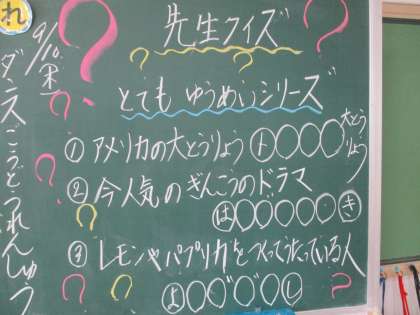 れ
9/10(木)
ダンスごうどうれんしゅう
先生クイズ
とてもゆうめいシリーズ
① アメリカの大とうりょう ト〇〇〇〇大とうりょう
② 今人気のぎんこうのドラマ
は〇〇゛〇〇〇き
③ レモンやパプリカをつくってうたっている人
よ〇〇゛〇゛〇〇し